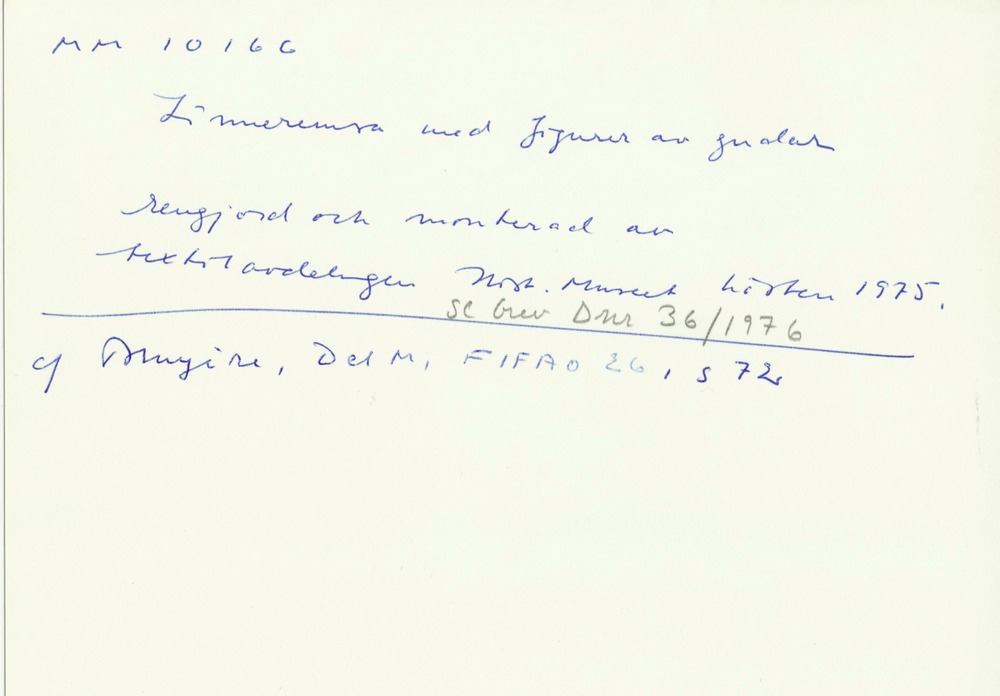 MM 10166
Linneremsa med figurer av gudar
rengjord och monterad av
textilavdelningen Hist. Museet hösten 1975.
se brev Dnr 36/1976
cf Bruyère, Del M, FIFAO 26, s 72